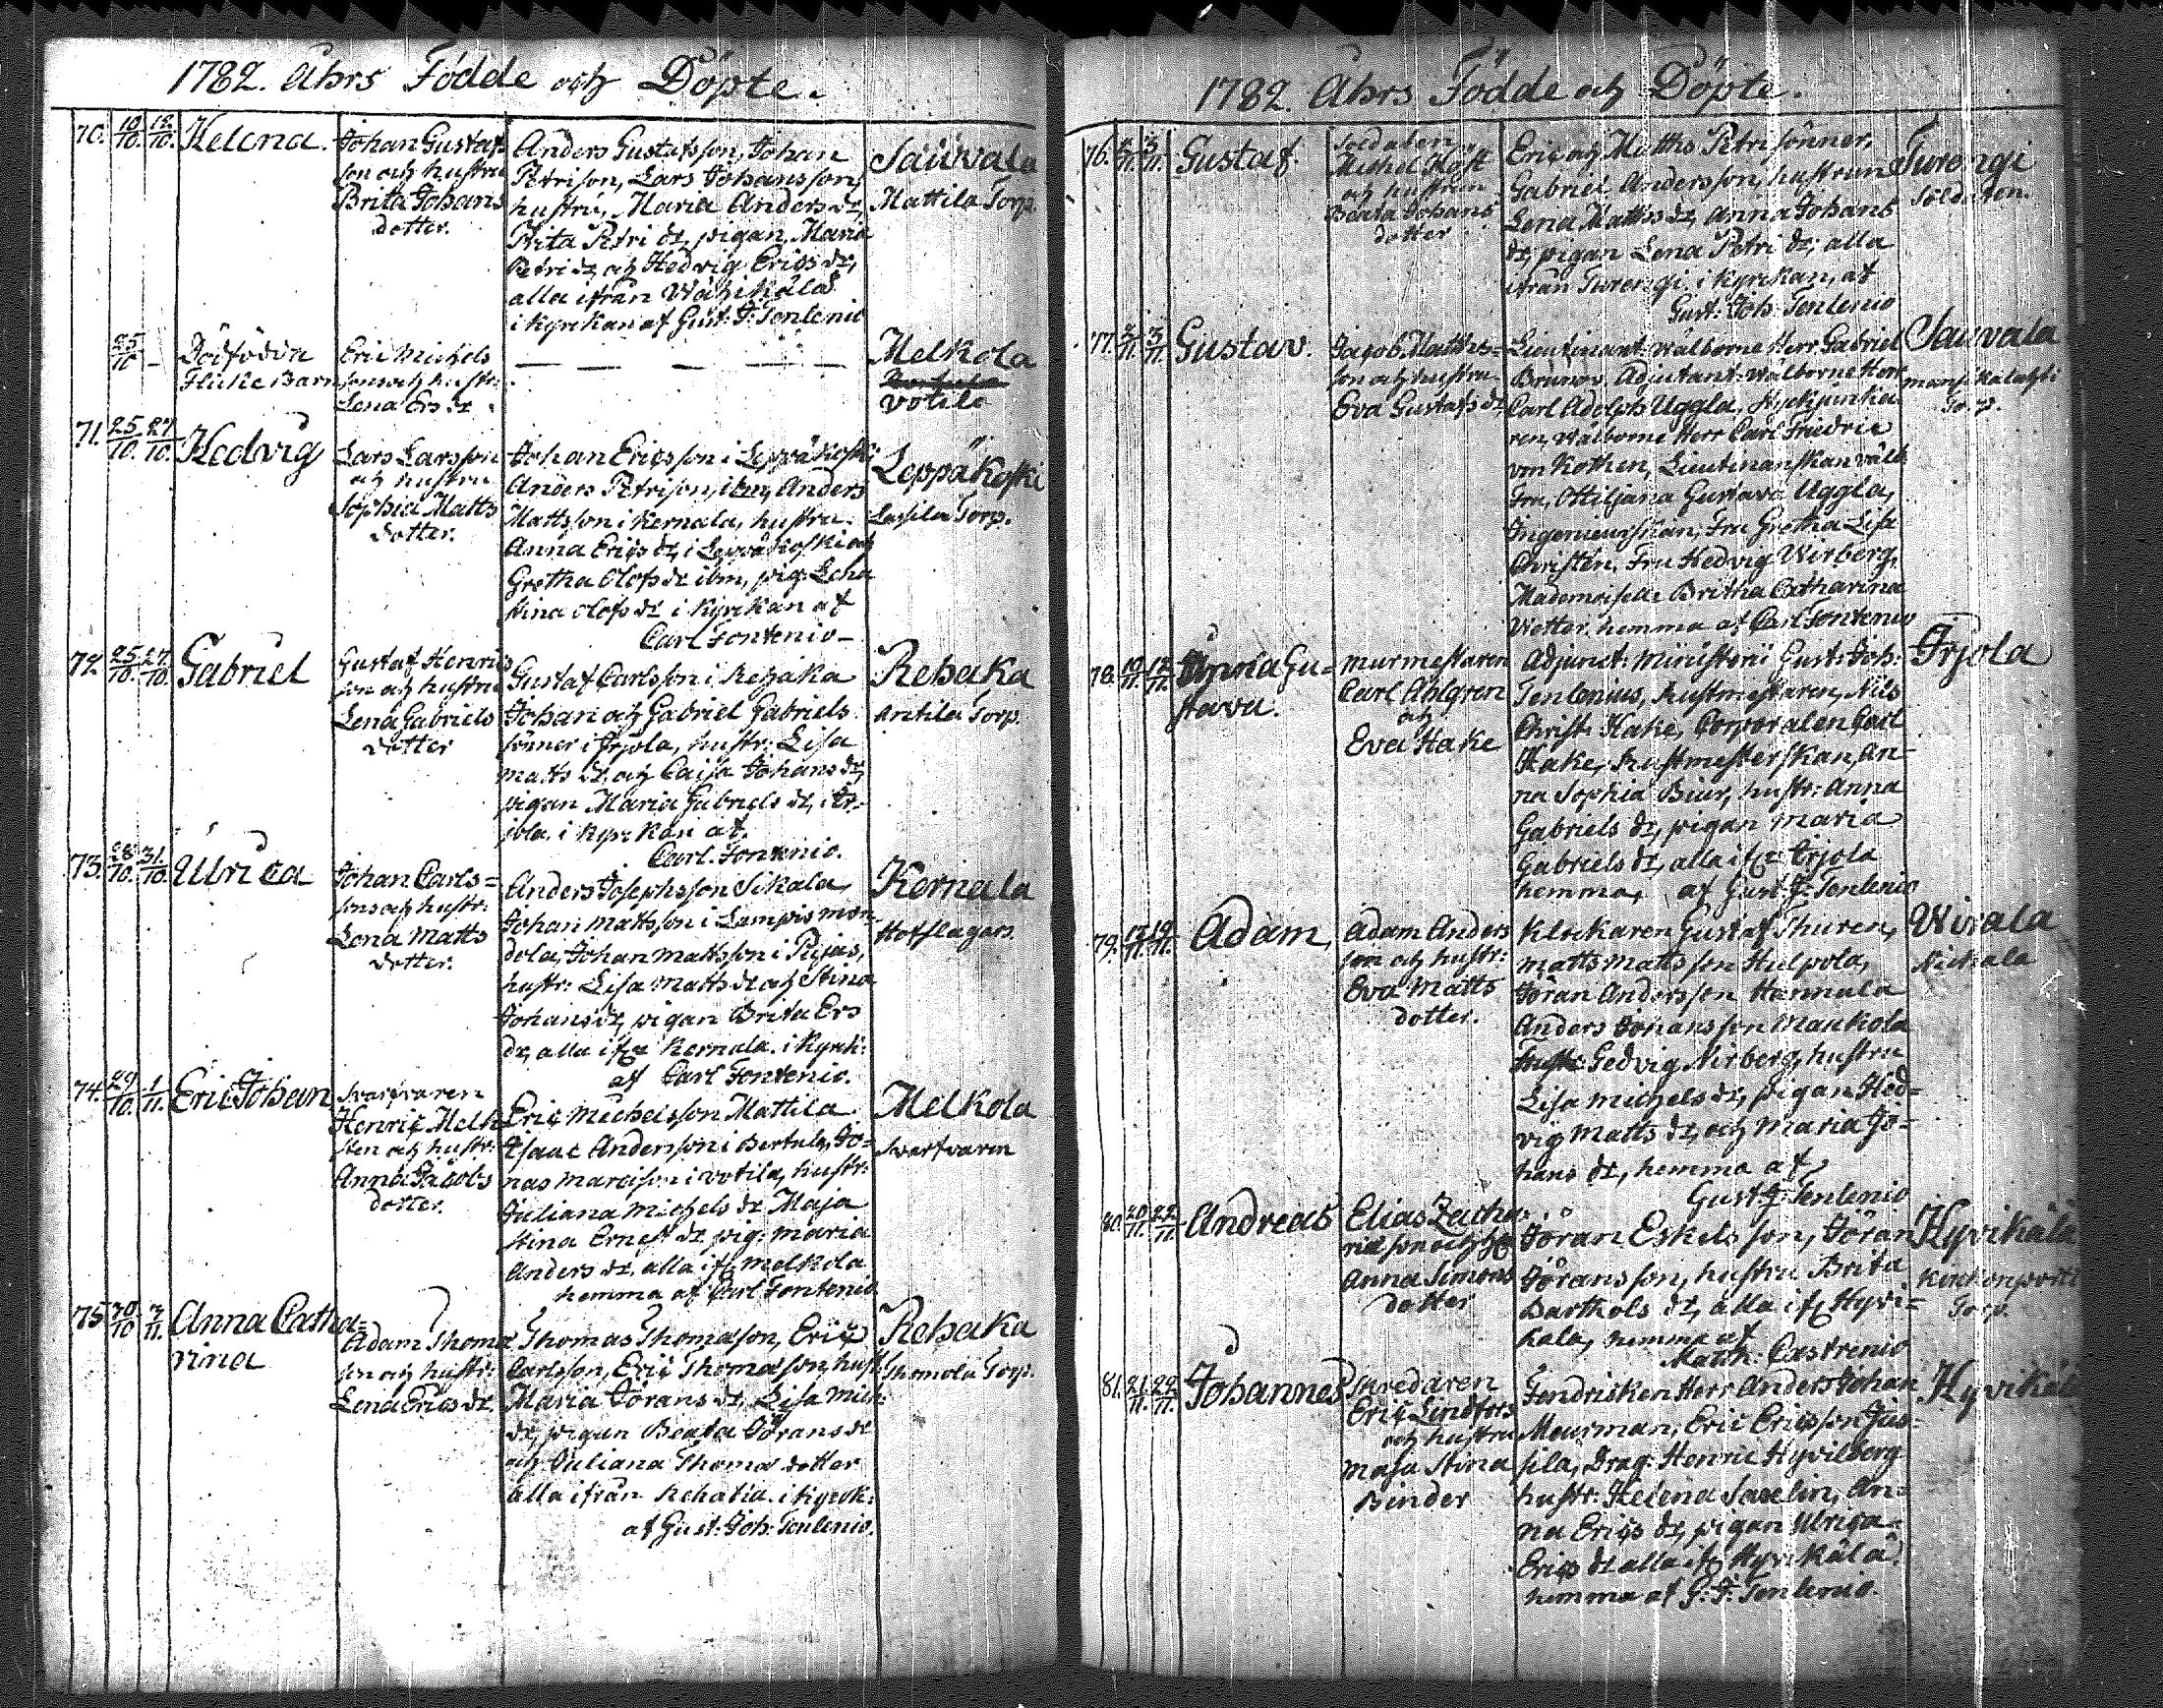 1782. Åhrs Födde och Döpte.
70. 10/10. 12/10. Helena.
Johan Gustaf
son och hustru
Brita Johans
dotter.
Anders Gustafsson, Johan
Petrison, Lars Johansson,
hustru, Maria Anders dr,
Brita Petri dr, pigan Maria
Petri dr och Hedvig Erics dr,
alla ifrån
i kyrkan af Gust: J: Tenlenio
Sauvala
Mattila Torp.
25/10 –
Dödföddn
Flicke Barn
Eric Michels
son och hustr:
Lena Ers dr
Melkola
Votila
71. 25/10. 27/10. Hedvig
Lars Larsson
och hustru
Sophia Matts
dotter.
Johan Ericsson i Leppäkoski
Anders Petrison, ibm, Anders
Mattsson i Kernala, hustru
Anna Erics dr, i Leppäkoski och
Gretha Olofs dr ibm, pig: Lena
Stina Olofs dr i kyrkan af
Carl Fontenio
Leppäkoski
Lassila Torp.
72 25/10. 27/10. Gabriel
Gustaf Henrics
son och hustru
Lena Gabriels
dotter
Gustaf Carlsson i Rehaka
Johan och Gabriel Gabriels
söner i Irjola, hustr: Lisa
Matts dr och Caisa Johans dr,
pigan Maria Gabriels dr, i Ir-
jola. i kyrkan af.
Carl. Fontenio.
Rehaka
Antila Torp.
73. 28/10. 31/10. Ulrica
Johan Carls=
son och hustr:
Lena Matts
dotter.
Anders Josephsson Sikala,
Johan Mattsson i Lampis
Johan Mattsson i
hustr: Lisa Matts dr och Stina
Johans dr, pigan Brita Ers
dr, alla ifr Kernala. i kyrk:
af Carl Fontenio.
Kernala
Hofslagars
74. 29/10. 1/11. Eric Johan
Svarfvaren
Henric Melk
sten och hustr:
Anna Jacobs
dotter.
Eric Michelsson Mattila
Isaac Anderson i Bertula, Jo=
nas i Votila, hustr:
Juliana Michels dr Maja
Stina Ernest dr pig: Maria
Anders dr. alla ifr Melkola
hemma af Carl Fontenio
Melkola
Svarfvaren
75 30/10 3/11. Anna Catha=
rina
Adam Thoma
son och hustr:
Lena Erics dr.
Thomas Thomasson, Eric
Carlsson, Eric Thomasson, hust
Maria Jörans dr, Lisa Mich:
dr, pigan Beata Jörans dr
och Juliana Thoma dotter
alla ifrån Rehaka. i kyrk:
af Gust: Joh: Tenlenio.
Rehaka
Thomola Torp.
1782. Åhrs Födde och Döpte.
76. 3/11. Gustaf.
Soldaten
Michel
och hustrun
Beata Johans
dotter
Eric och Matths Petri söner,
Gabriel Andersson, hustrun
Lena Matths dr, Anna Johans
dr, pigan Lena Petri dr, alla
ifrån Turengi. i kyrkan, af
Gust: Joh: Tenlenio
Turengi
Soldaten.
77. 2/11. 3/11. Gustav.
Jacob Matths=
son och hustru
Eva Gustafs dr,
Lieutinant: Wälborne Herr Gabriel
Brunov. Adjutant: Wälborne Herr
Carl Adolph Uggla, Styckjunka
ren Wälborne Herr Carl Friedric
von Kothen, Lieutinanskan välb
Fru, Ottiljana Gustava Uggla,
Ingenieurskan, Fru Gretha Lisa
Christen. Fru Hedvig Wirberg,
Mademoiselle Britha Catharina
Wetter. hemma af Carl Fontenio
Sauvala
Torp.
78. 10/11. 12/11. Anna Gu=
stava.
Murmestaren
Carl Ahlgren
och
Eva Hake
Adjunct: Ministerii Gust: Joh:
Tenlenius, Rustmestaren, Nils
Christ: Hake, Corporalen Carl
Hake, Rustmesterskan An-
na Sophia Biur, hustr: Anna
Gabriels dr, pigan Maria
Gabriels dr, alla ifr Irjola
hemma, af Gust: J: Tenlenio
Irjola
79. 17/11. 19/11. Adam,
Adam Anders
son och hustr:
Eva Matts
dotter.
Klockaren Gustaf Thuren,
Matts Mattsson Hulpola,
Jöran Andersson Hannula
Anders Johansson Maukola
Gedvig Nirberg, hustru
Lisa Michels dr, pigan Hed=
vig Matts dr, och Maria Jo=
hans dr, hemma af
Gust: J: Tenlenio
Wirala
Nickala
80. 20/11. 22/11. Andreas
Elias Zacha
riæ son och
Anna Simons
dotter
Jöran Eskelsson, Jöran
Jöransson, hustru Brita
Barthols dr, alla ifr Hyvi=
kälä, hemma af
Matth: Castrenio
Hyvikälä
Torp.
81. 21/11. 22/11. Johannes
Skredaren
Eric Lindfors
och hustru
Maja Stina
Binder
Fendricken Herr Anders Johan
Meurman, Eric Ericsson Jus=
sila, Drag: Henric Hyvilberg
hustr: Helena Savelin, An=
na Erics dr, pigan Ulrica
Erics dr alla ifr Hyvikälä.
hemma af G: J: Tenlenio.
Hyvikälä